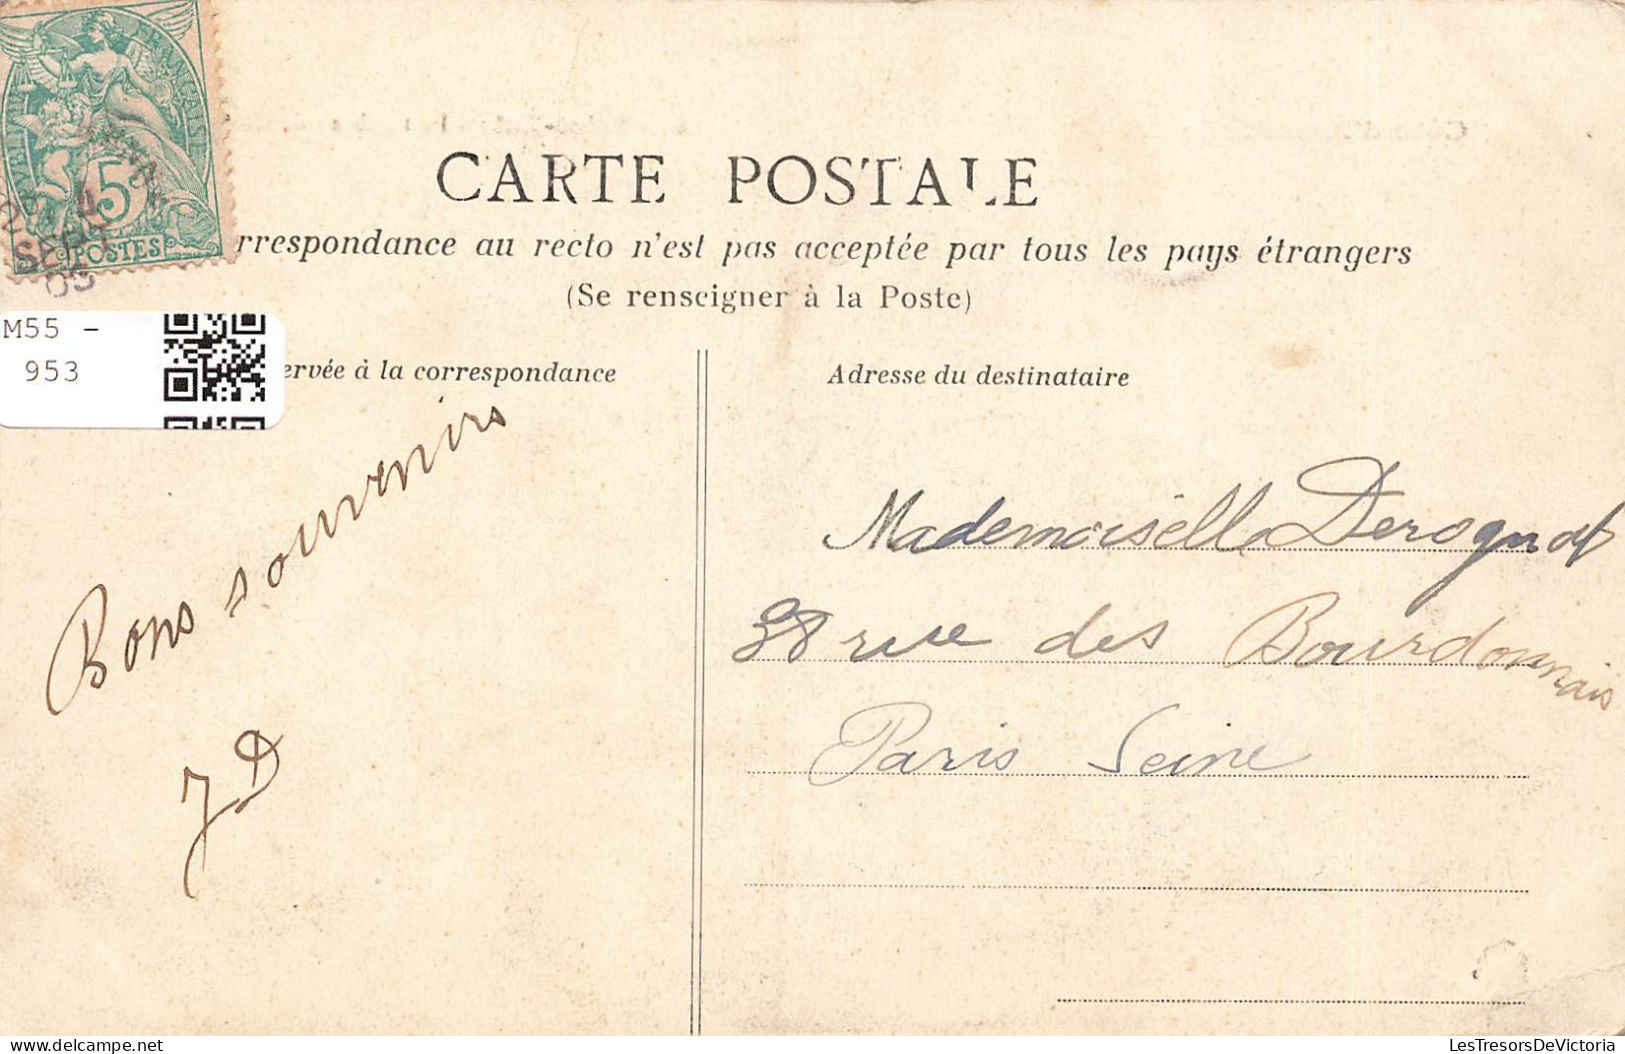 RANÇAIS
5
POSTES
SEPT
05
M55 -
953
CARTE POSTALE
rrespondance au recto n'est pas acceptée par tous les pays étrangers
(Se renseigner à la Poste)
ervée à la correspondance
Bons souvenirs
JD
Adresse du destinataire
Mademoiselle Derognat
38 rue des Bourdonnais
Paris Seine
LesTresorsDeVictoria